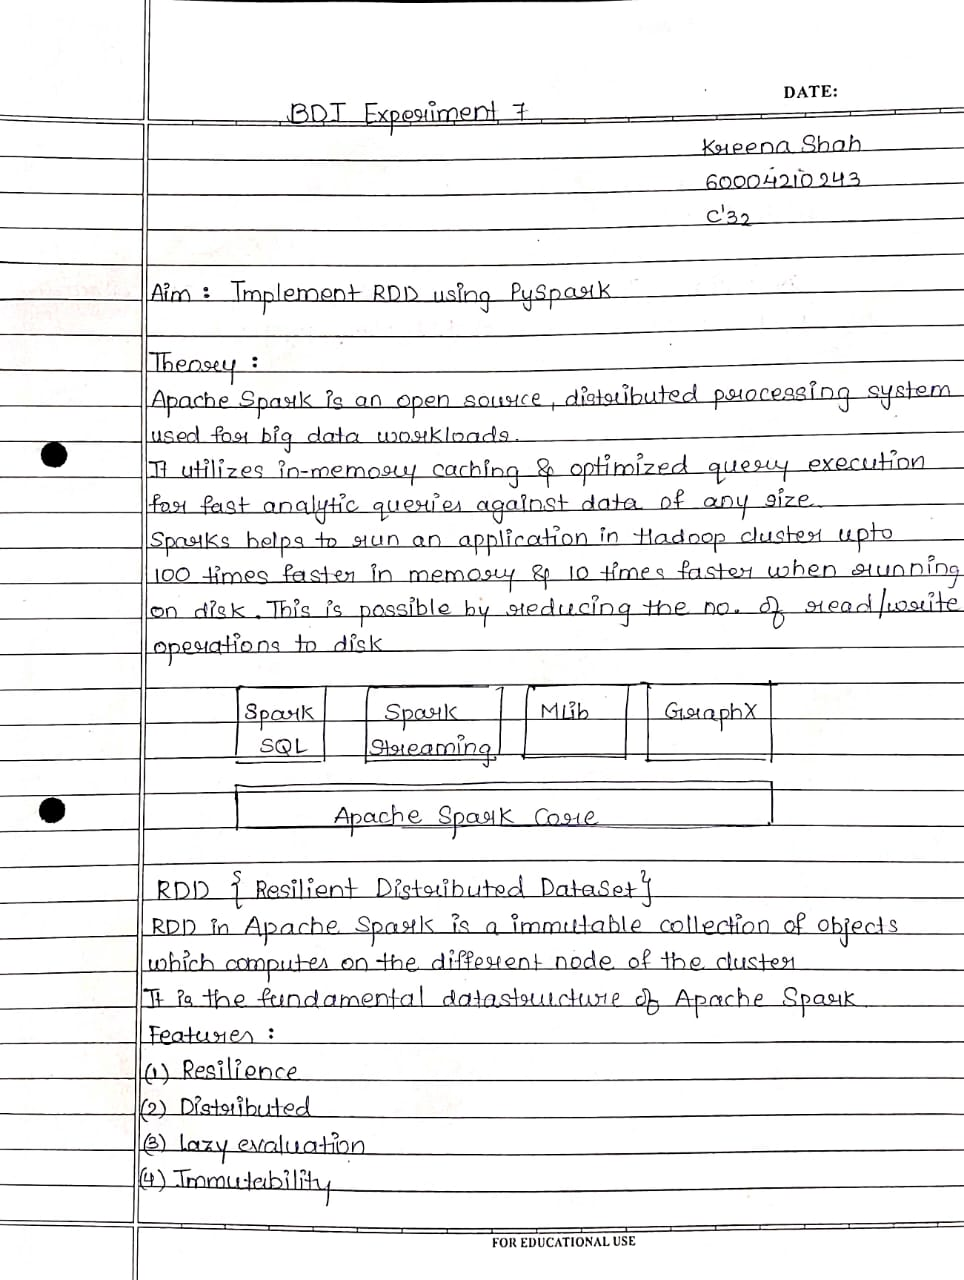 DATE:
BDI Experiment 7
Kreena Shah
60004210243
C'32
Aim : Implement RDD using PySpark
Theory :
Apache Spark is an open source, distributed processing system
used for big data workloads.
It utilizes in-memory caching & optimized query execution
for fast analytic queries against data of any size.
Sparks helps to run an application in Hadoop cluster upto
100 times faster in memory & 10 times faster when running
on disk. This is possible by reducing the no. of read/write
operations to disk
Spark SQL
Spark Streaming
MLib
GraphX
Apache Spark Core
RDD { Resilient Distributed DataSet}
RDD in Apache Spark is a immutable collection of objects
which computes on the different node of the cluster
It is the fundamental datastructure of Apache Spark
Features :
(1) Resilience
(2) Distributed
(3) Lazy evaluation
(4) Immutability
FOR EDUCATIONAL USE